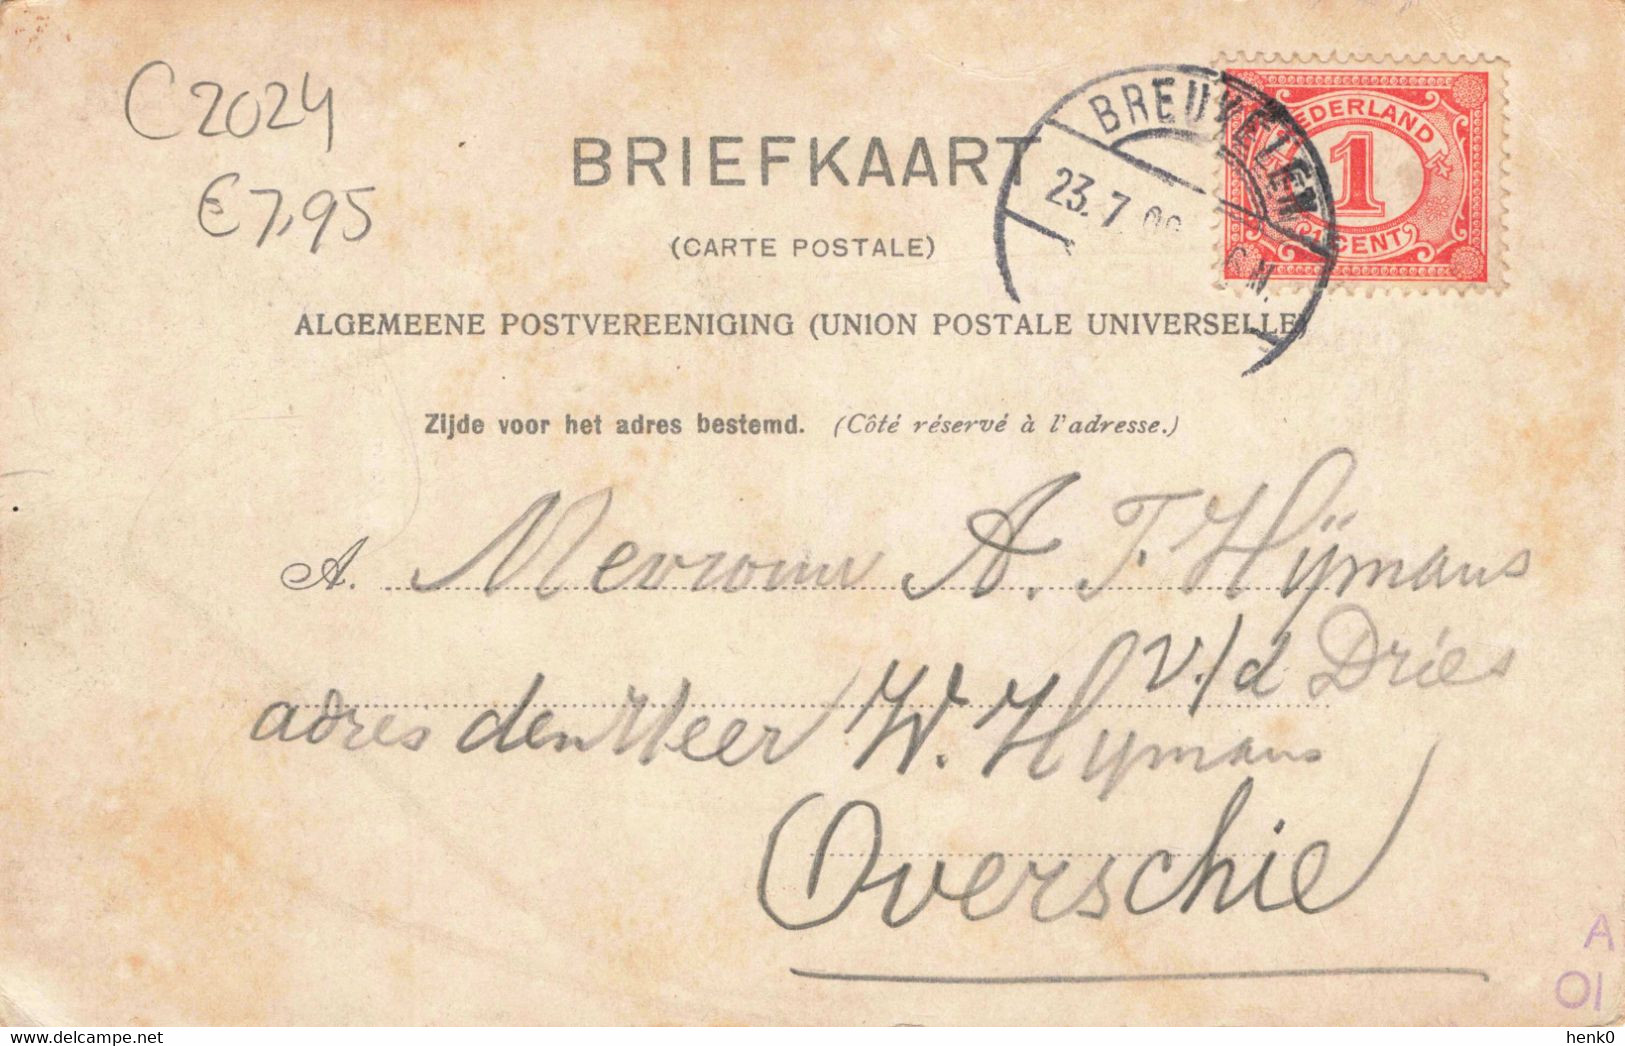 C2024
€7,95
BRIEFKAART
(CARTE POSTALE)
ALGEMEENE POSTVEREENIGING (UNION POSTALE UNIVERSELLE)
Zijde voor het adres bestemd. (Côté réservé à l'adresse.)
BREUKELEN
23. 7
NEDERLAND
1
1 CENT
A. Mevrouw A. T. Hÿmans
v./d Dries
adres den Heer W. Hymans
Overschie
A
01
delcampe.net
henk0